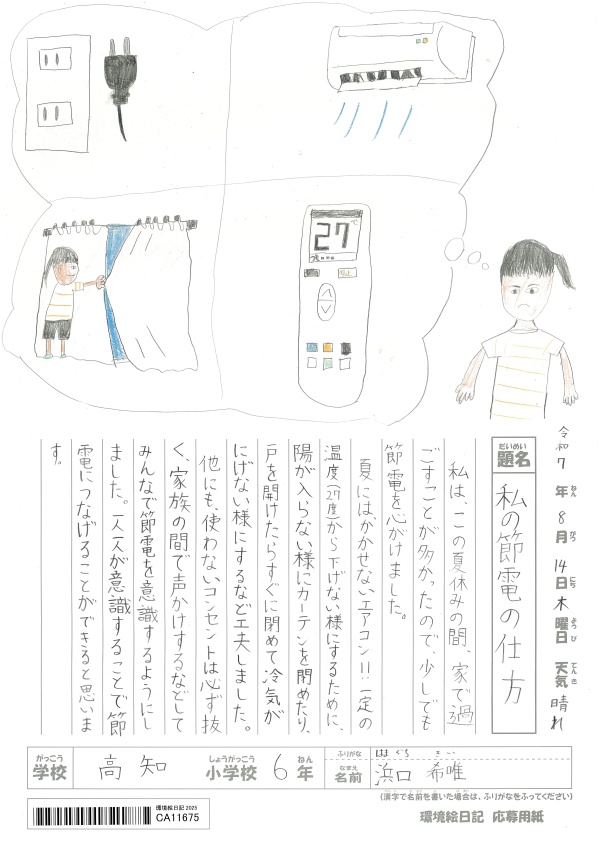 27℃
令和7年8月14日木曜日 天気 晴れ
ねん がつ にち ようび てんき
だいめい
題名
私の節電の仕方
私は、この夏休みの間、家で過
ごすことが多かったので、少しでも
節電を心がけました。
夏にはかかせないエアコン!!一定の
温度(27度)から下げない様にするために、
陽が入らない様にカーテンを閉めたり、
戸を開けたらすぐに閉めて冷気が
にげない様にするなど工夫しました。
他にも、使わないコンセントは必ず抜
く、家族の間で声かけするなどして
みんなで節電を意識するようにし
ました。一人一人が意識することで節
電につなげることができると思いま
す。
がっこう しょうがっこう ねん
学校 高知 小学校 6年
ふりがな はまぐち きい
なまえ
名前 浜口 希唯
(漢字で名前を書いた場合は、ふりがなをふってください)
環境絵日記 2025
CA11675
環境絵日記 応募用紙